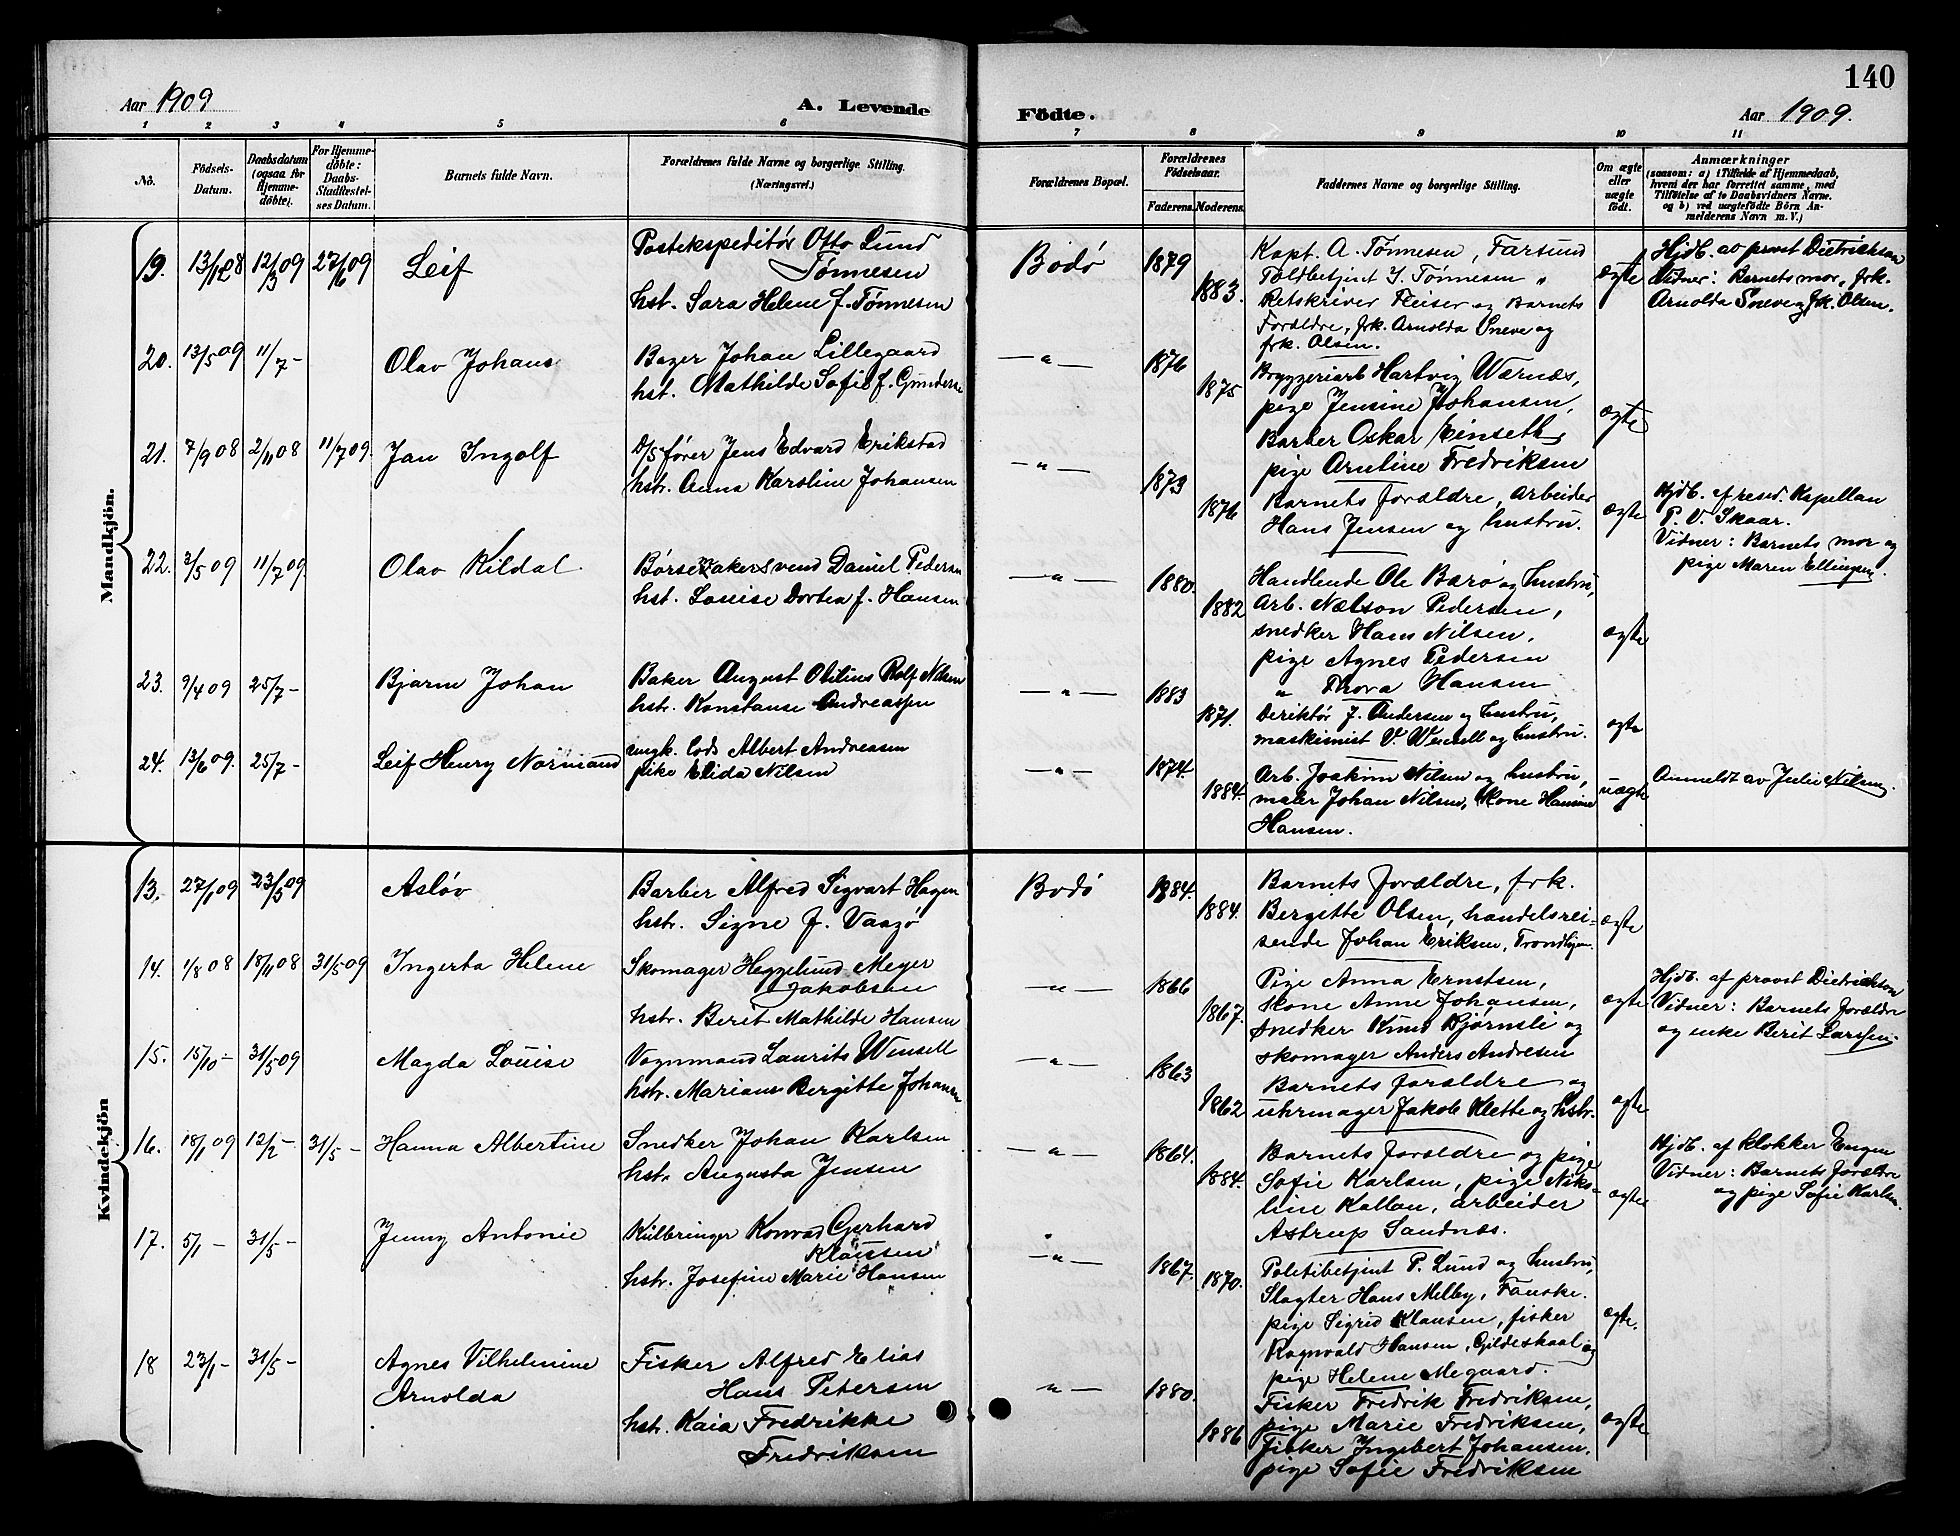 140
Aar 1909
A. Levende Födte.
Aar 1909.
1 2 3 4 5 6 7 8 9 10 11
No.
Födsels-Datum.
Daabsdatum (ogsaa for Hjemme-döbte).
For Hjemme-döbte: Daabs-Stadfæstel-ses Datum.
Barnets fulde Navn.
Forældrenes fulde Navne og borgerlige Stilling. (Næringsvei.)
Forældrenes Bopæl.
Forældrenes Födselsaar.
Faderens. Moderens.
Faddernes Navne og borgerlige Stilling.
Om ægte eller uægte födt.
Anmærkninger
(saasom: a) i Tilfælde af Hjemmedaab,
hvem der har forrettet samme, med
Tilföielse af to Daabsvidners Navne.
og b) ved uægtefödte Börn An-
melderens Navn m. V.)
Mandkjön.
19. 13/12 08 12/3 09 27/6 09 Leif
Postekspeditör Otto Lund
Tönnesen
hst. Sara Helene f. Tönnesen
Bodö 1879 1883.
Kapt. A. Tönnesen, Farsund
Toldbetjent Y. Tönnesen "
Retskriver Fleiser og Barnets
Forældre, frk. Arnolda Sneve og
frk. Olsen.
ægte
Hjdb. av provst Dietrichson
Vidner: Barnets mor, frk.
Arnolda Sneve og frk. Olsen.
20. 13/5 09 11/7 – Olav Johans
Bager Johan Lillegaard
hst. Mathilde Sofie f. Gunders
— " — 1876 1875
Bryggeriarb Hartvig Wærnæs,
pige Jensine Johansen,
Barber Oskar Einseth,
pige Arntine Fredriksen
ægte
21. 7/9 08 2/11 08 11/7 09. Jan Ingolf
D/S förer Jens Edvard Erikstad
hstr. Anna Karoline Johansen
— " — 1873 1876
Barnets forældre, arbeider
Hans Jensen og hustru.
ægte
Hjdb. af resid. Kapellan
P. V. Skaar.
Vidner: Barnets mor og
pige Maren Ellingsen.
22. 3/5 09 11/7 09 Olav Kildal
Börsemakersvend Daniel Pedersen
hst. Louise Dortea f. Hansen
— " — 1880. 1882
Handlende Ole Barö og hustru,
Arb. Nelson Pedersen,
snedker Hans Nilsen,
pige Agnes Pedersen
" Thora Hansen
ægte
23. 9/4 09 25/7 – Bjarne Johan
Baker August Otilius Rolf Nilsen
hstr. Konstanse Andreassen
— " — 1883 1871.
Direktör J. Andersen og hustru,
maskinist V. Wensell og hustru.
ægte
24. 13/6 09. 25/7 – Leif Henry Normand
ungk. Lods Albert Andreasen
pike Elida Nilsen
— " — 1874. 1884.
Arb. Joakim Nilsen og hustru,
maler Johan Nilsen, kone Hansine
Hansen.
uægte
Anmeldt av Julie Nilsen.
Kvindekjön
13. 27/1 09 23/5 09 Aslöv
Barber Alfred Sigvart Hagen
hstr. Signe f. Vaagö
Bodö 1884. 1884.
Barnets forældre, frk.
Bergitte Olsen, handelsrei-
sende Johan Eriksen, Trondhjem.
ægte
14. 1/8 08 18/11 08 31/5 09 Ingerta Helene
Skomager Heggelund Meyer
Jakobsen
hstr. Berit Mathilde Hansen
— " — 1866 1867.
Pige Anna Ernstsen,
kone Anne Johansen,
snedker Knud Bjørnsli og
skomager Anders Andresen
ægte
Hjdb. af provst Dietrichson
Vidner: Barnets forældre
og enke Berit Larssen.
15. 15/10 – 31/5 09 Magda Louise
Vognmand Laurits Wensell
hstr. Mariane Bergitte Johansen
— " — 1863 1862
Barnets forældre og
uhrmager Jakob Klette og hstr.
ægte
16. 18/1 09 12/2 – 31/5 – Hanna Albertine
Snedker Johan Karlsen
hstr. Augusta Jensen
— " — 1864. 1884.
Barnets forældre og pige
Sofie Karlsen, pige Niko-
line Kallan, arbeider
Astrup Sandnæs.
ægte
Hjdb. af klokker Engen
Vidner: Barnets forældre
og pige Sofie Karlsen.
17. 5/1 – 31/5 – Jenny Antonie
Kulbringer Konrad Gerhard
Klaussen
hstr. Josefine Marie Hansen
— " — 1867. 1870.
Politibetjent P. Lund og hustru,
Slagter Hans Melby, Fauske.
pige Sigrid Klausen, fisker
Ragnvald Hansen, Gildeskaal og
pige Helene Megaard.
ægte.
18 23/1 – 31/5 – Agnes Vilhelmine
Arnolda
Fisker Alfred Elias
Hans Petersen
hstr. Kaia Fredrikke
Fredriksen
— " — 1880. 1886
Fisker Fredrik Fredriksen,
pige Marie Fredriksen,
Fisker Ingebert Johansen,
pige Sofie Fredriksen
ægte